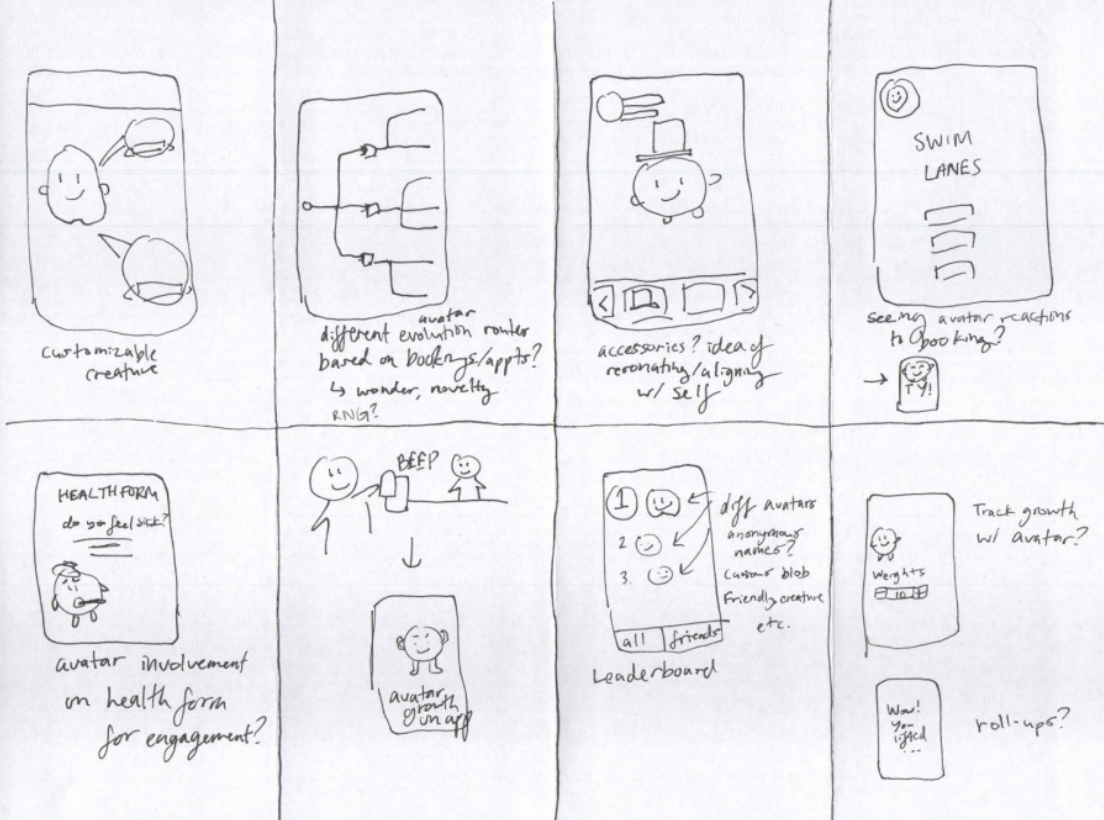 customizable
creature
avatar
different evolution routes
based on bookings/appts?
↳ wonder, novelty
RNG?
accessories? idea of
resonating/aligning
w/ self
SWIM
LANES
seeing avatar reactions
to booking?
→
TY!
HEALTH FORM
do you feel sick?
avatar involvement
on health form
for engagement?
BEEP
avatar
growth
on app
1
2
3.
all
friends
diff avatars
anonymous
names?
Curious blob
Friendly creature
etc.
Leaderboard
Weights
10
Track growth
w/ avatar?
Wow!
you
lifted
...
roll-ups?